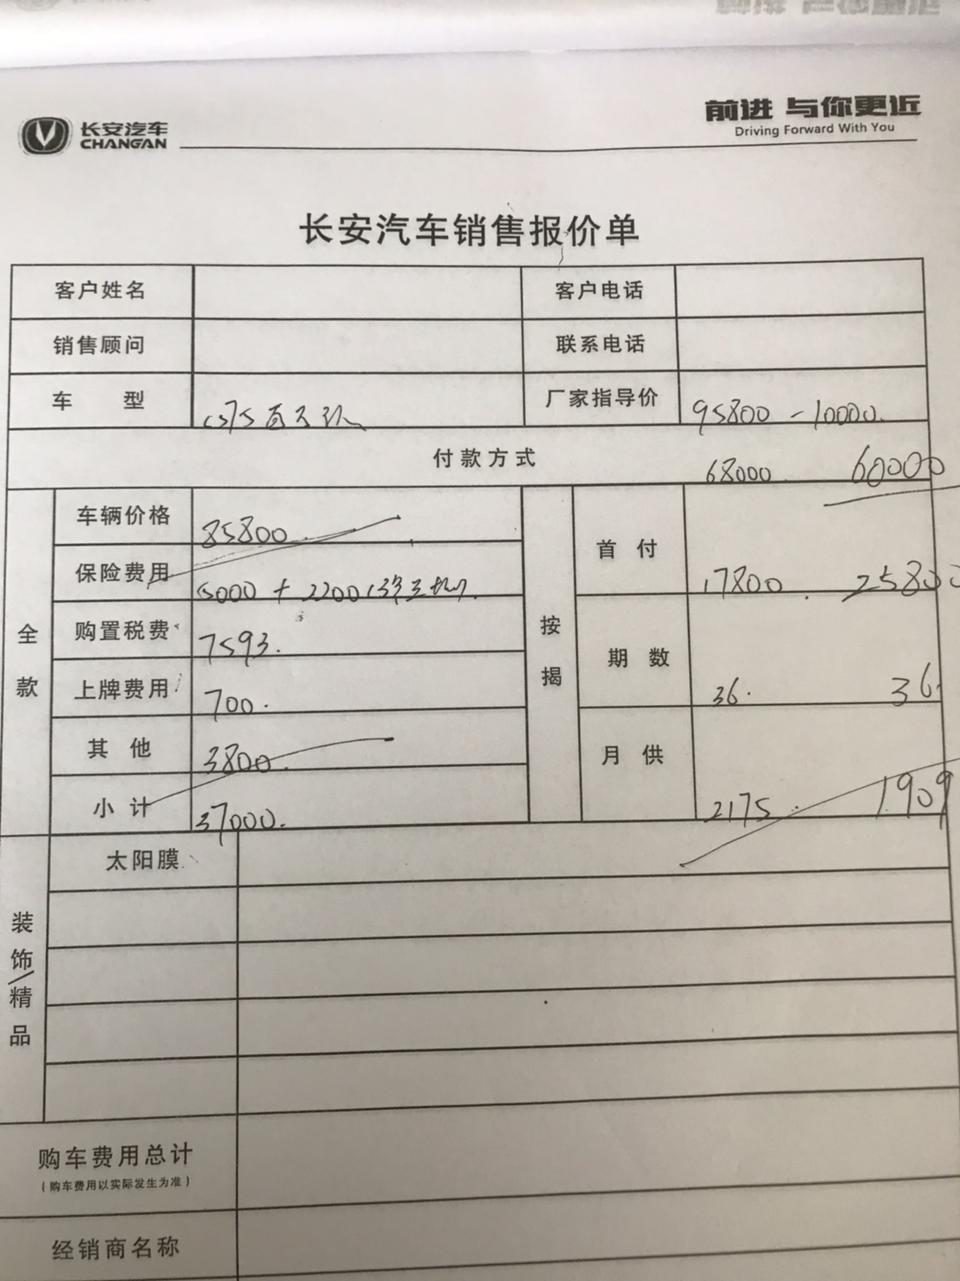 长安汽车
CHANGAN
前进 与你更近
Driving Forward With You
长安汽车销售报价单
客户姓名 客户电话
销售顾问 联系电话
车 型 CS75 厂家指导价 95800 - 10000.
付款方式 68000 60000
全款
车辆价格 85800
保险费用 5000 + 2200
购置税费 7593.
上牌费用 700.
其 他 3800.
小 计 37000.
按揭
首 付 17800. 25800
期 数 36. 36.
月 供 2175. 1909
装饰/精品
太阳膜
购车费用总计
(购车费用以实际发生为准)
经销商名称